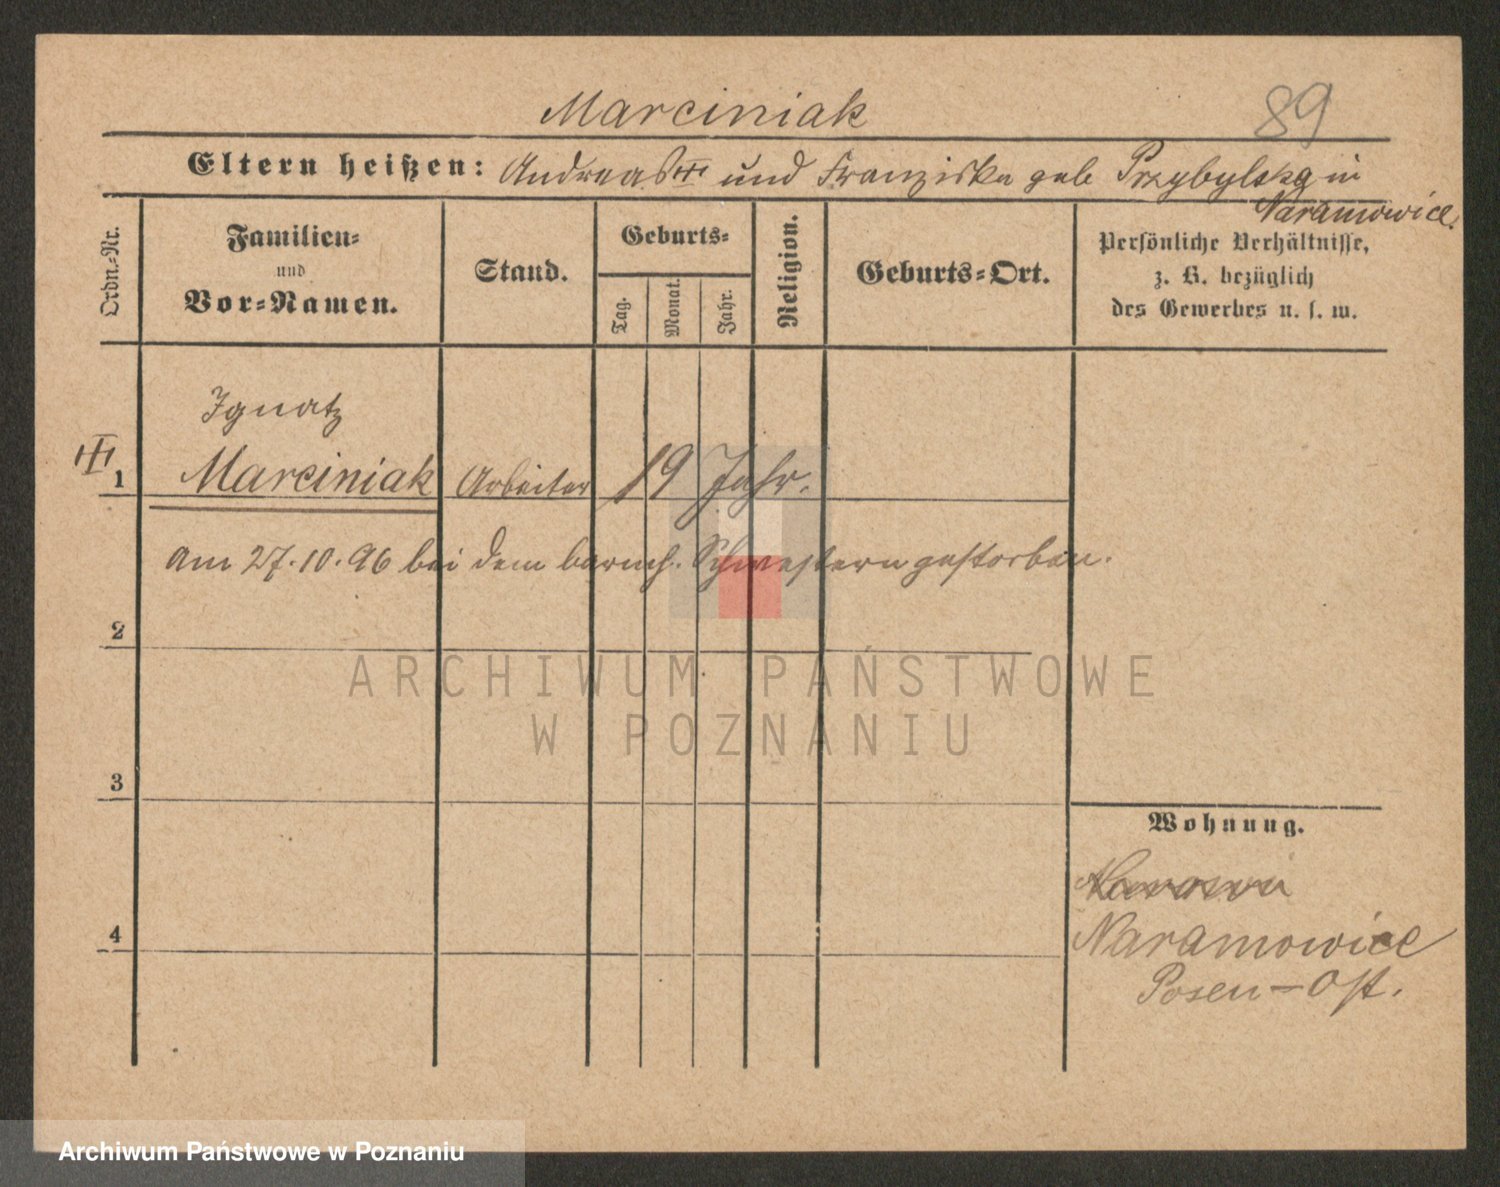 Marciniak
89
Eltern heißen: Andreas und Franziska geb Przybylska in
Naramowice.
Ordn.-Nr.
Familien-
und
Vor-Namen.
Stand.
Geburts-
Tag.
Monat.
Jahr.
Religion.
Geburts-Ort.
Persönliche Verhältnisse,
z. B. bezüglich
des Gewerbes u. s. w.
Ignatz
1 Marciniak Arbeiter 19 Jahr.
am 27.10.96 bei dem barmh. Schwestern gestorben.
2
ARCHIWUM PAŃSTWOWE
W POZNANIU
3
Wohnung.
4
Naramowice
Posen-Ost.
Archiwum Państwowe w Poznaniu